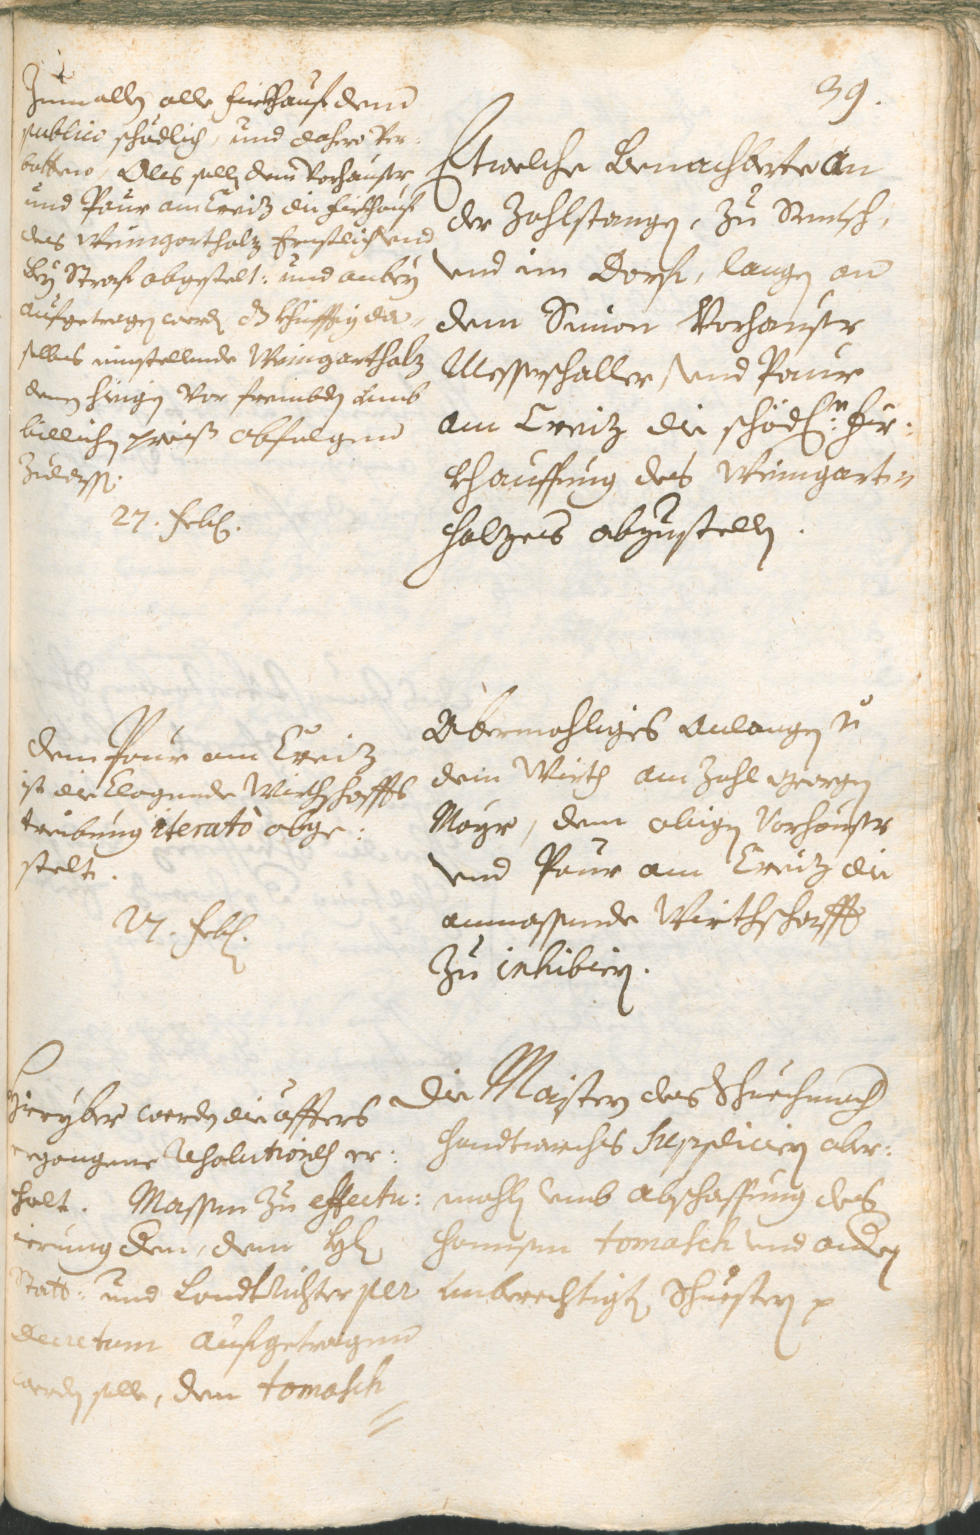 39.
Zumallen alle fürkhauf dem
publico schädlich, und dahero ver-
botten, Als solle dem Vorhauser
und Paur am Creitz die fürkhauf
des Weingartholz Ernstlich und
bey Straf abgestelt: und anbey
aufgetragen werden khünfftig da-
selbes einstellende Weingartholz
denen hiesigen vor frembden umb
billichen preiß abfolgen
Zulassen.
27. Feb:
Etwelche Benachberte An
der Zohlstangen, Zu Rentsch,
und im Dorf, langen an
dem Simon Vorhauser
Messerschaller, und Paur
am Creitz die schädl: für:
khauffung des Weingart=
holzes abzustellen.
dem Paur am Creitz
ist die Clagende Wirthschaffts
treibung iterato abge:
stelt.
27. Feb:
Abermahliges anlangen
dem Wirth am Zohl Georgen
Mayr, dem obigen Vorhauser
und Paur am Creitz die
anmassende Wirthschafft
Zu inhibiern.
Hieryber werden die öffters
ergangene Resolutionen er:
holt. Massen Zu effectu:
ierung dem, dem H:
Statt: und Landtrichter per
decretum aufgetragen
werden solle, den tomasch
Die Maister des Schuechmach
handtwerchs Suppliciern aber:
mahlen umb abschaffung des
hannsen tomasch und andern
unberechtigten Schuestern